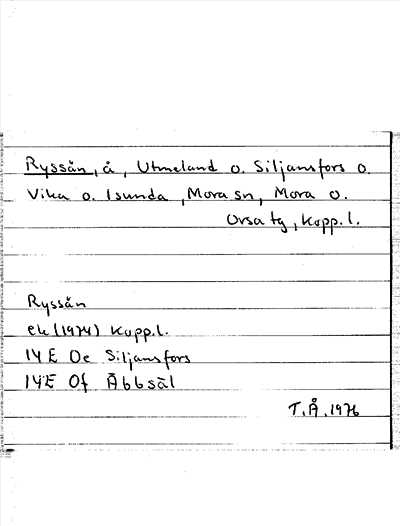 Ryssån, å, Utmeland o. Siljansfors o.
Vika o. Isunda, Mora sn, Mora o.
Orsa tg, Kopp. l.
Ryssån
ek (1974) Kopp. l.
14 E 0e Siljansfors
14 E 0f Åbbsäl
T.Å. 1976